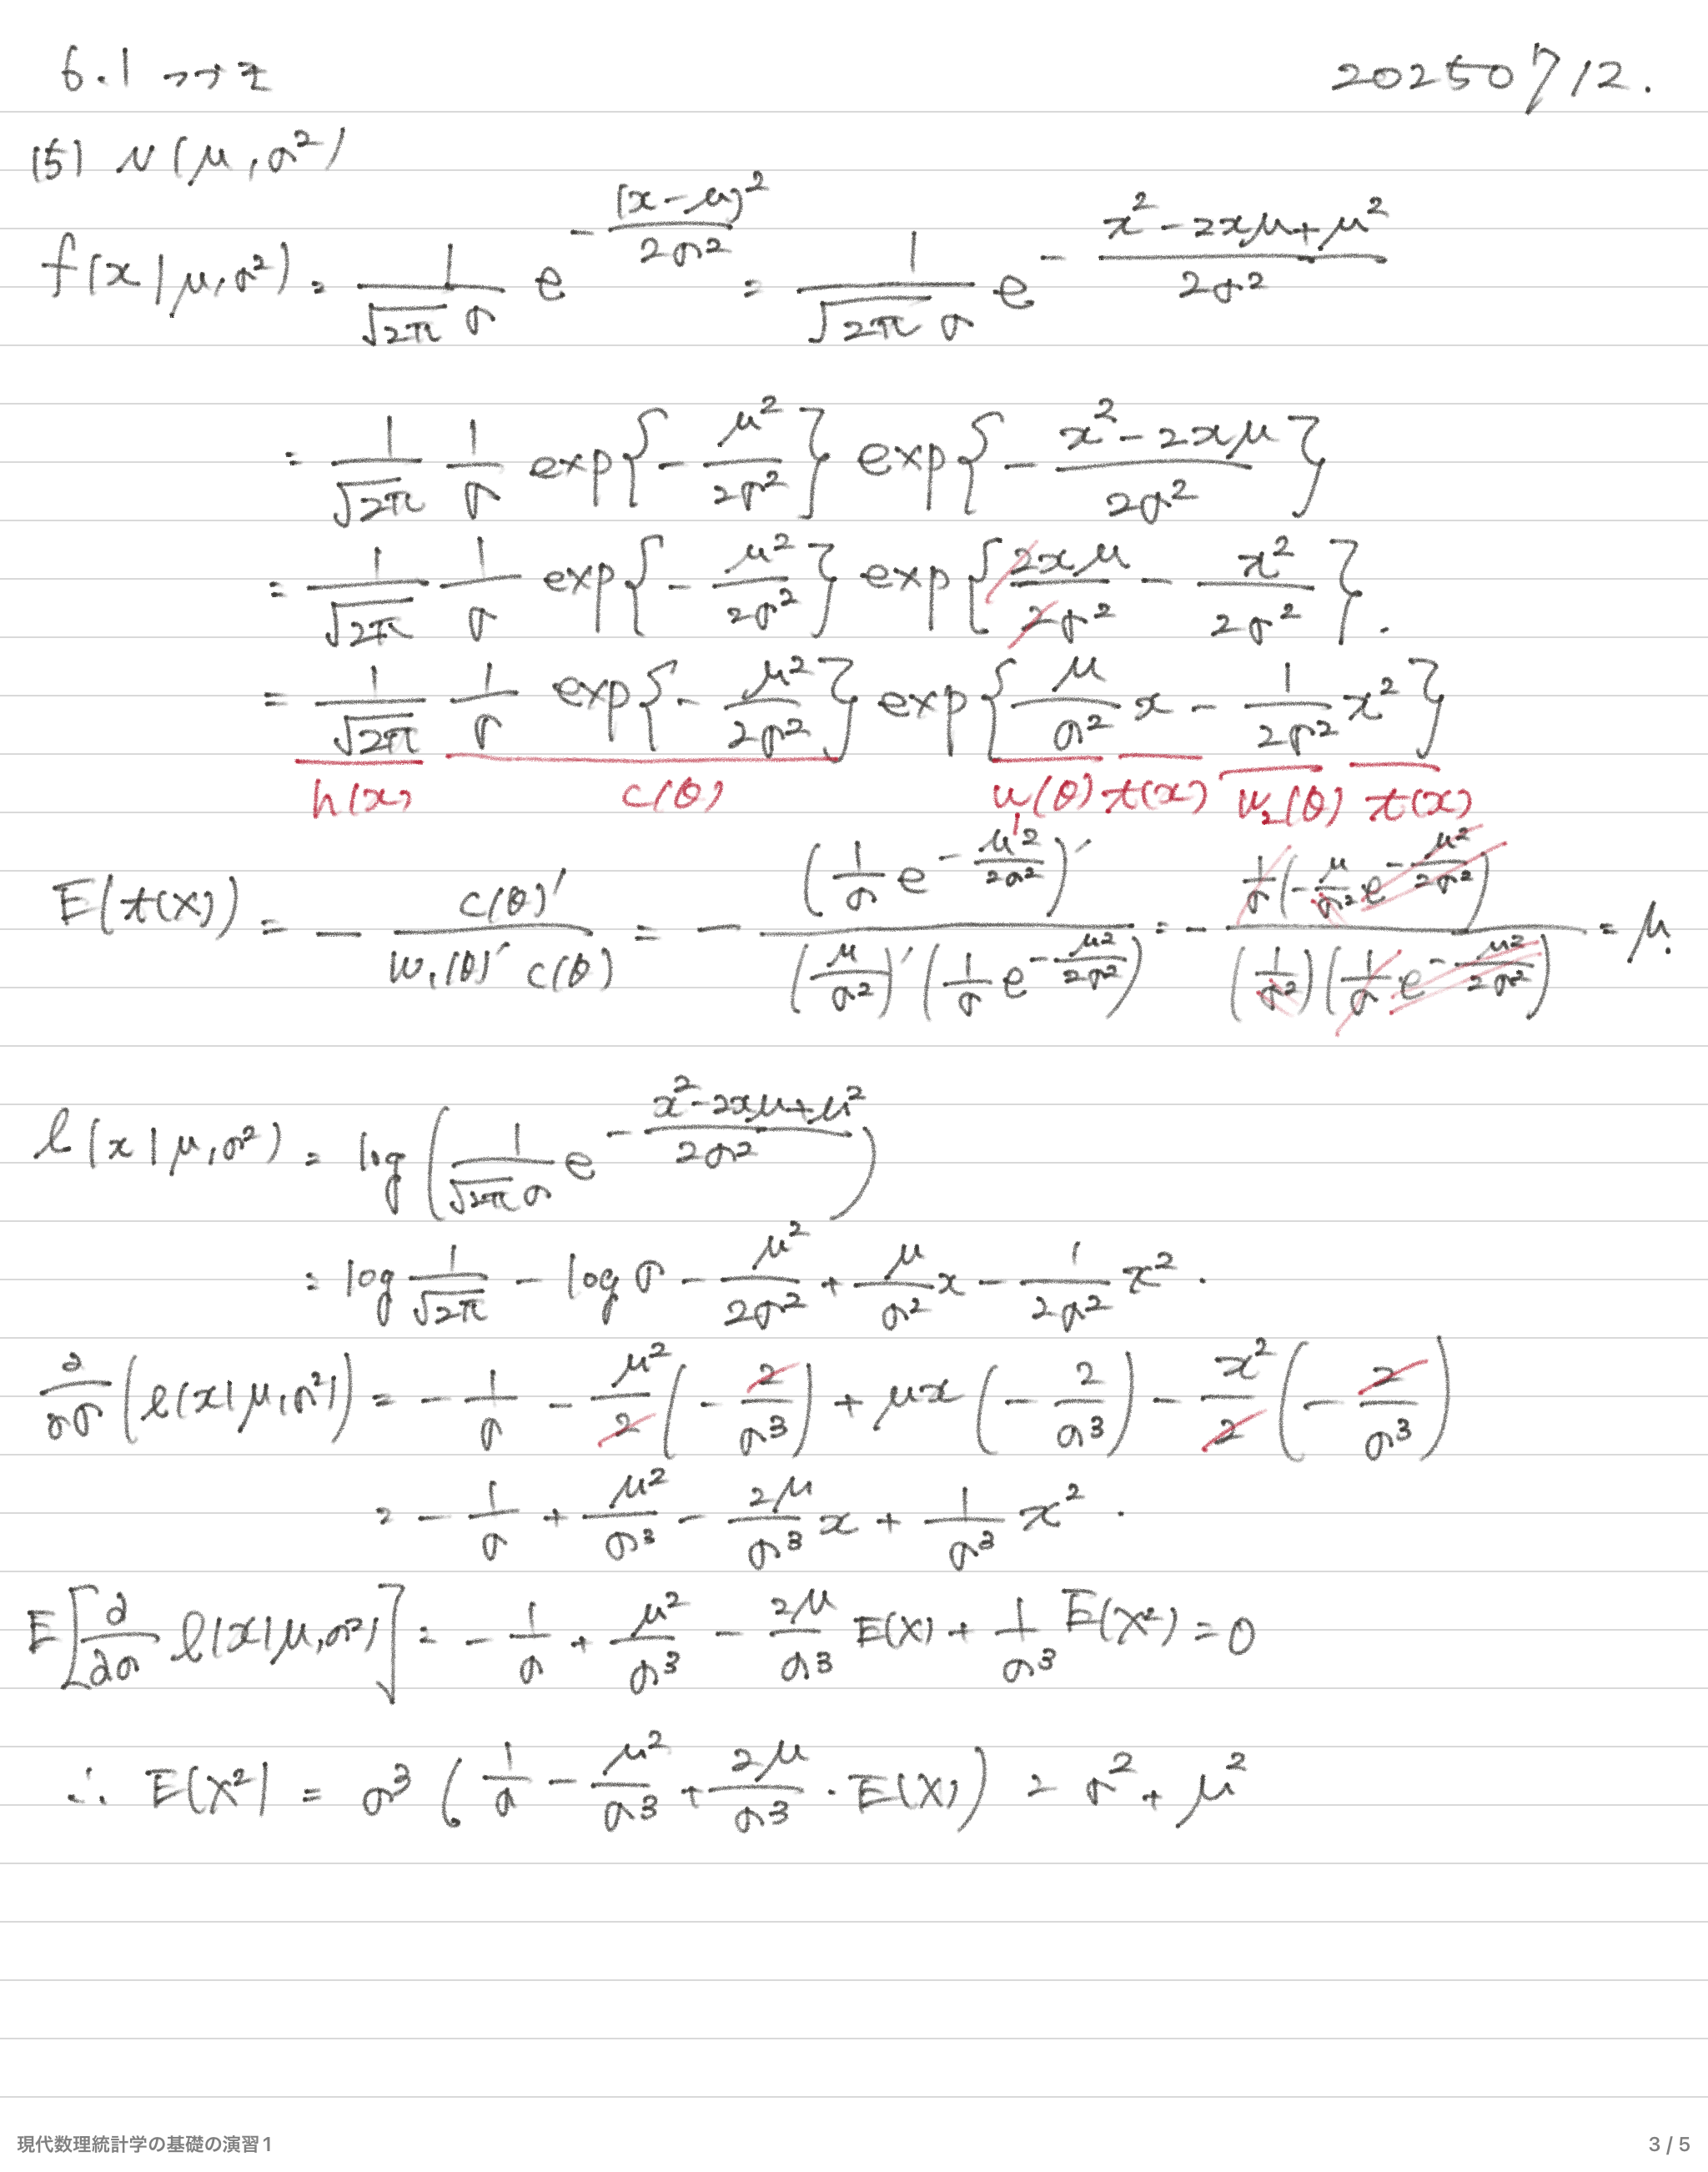 6.1 つづき 20250712.
(5) N(μ, σ²)
f(x|μ,σ²) = \frac{1}{\sqrt{2π} σ} e^{-\frac{(x-μ)²}{2σ²}} = \frac{1}{\sqrt{2π} σ} e^{-\frac{x²-2xμ+μ²}{2σ²}}
= \frac{1}{\sqrt{2π}} \frac{1}{σ} exp{-\frac{μ²}{2σ²}} exp{-\frac{x²-2xμ}{2σ²}}
= \frac{1}{\sqrt{2π}} \frac{1}{σ} exp{-\frac{μ²}{2σ²}} exp{\frac{2xμ}{2σ²} - \frac{x²}{2σ²}}.
= \frac{1}{\sqrt{2π}} \frac{1}{σ} exp{-\frac{μ²}{2σ²}} exp{\frac{μ}{σ²} x - \frac{1}{2σ²} x²}
h(x) c(θ) w₁(θ) t(x) w₂(θ) t(x)
E(t(X)) = - \frac{c(θ)'}{w₁(θ)' c(θ)} = - \frac{(\frac{1}{σ} e^{-\frac{μ²}{2σ²}})'}{(\frac{μ}{σ²})' (\frac{1}{σ} e^{-\frac{μ²}{2σ²}})} = - \frac{\frac{1}{σ}(-\frac{μ}{σ²} e^{-\frac{μ²}{2σ²}})}{(\frac{1}{σ²})(\frac{1}{σ} e^{-\frac{μ²}{2σ²}})} = μ.
ℓ(x|μ,σ²) = log(\frac{1}{\sqrt{2π} σ} e^{-\frac{x²-2xμ+μ²}{2σ²}})
= log \frac{1}{\sqrt{2π}} - log σ - \frac{μ²}{2σ²} + \frac{μ}{σ²} x - \frac{1}{2σ²} x².
\frac{∂}{∂σ}(ℓ(x|μ,σ²)) = - \frac{1}{σ} - \frac{μ²}{2}(-\frac{2}{σ³}) + μx(-\frac{2}{σ³}) - \frac{x²}{2}(-\frac{2}{σ³})
= - \frac{1}{σ} + \frac{μ²}{σ³} - \frac{2μ}{σ³} x + \frac{1}{σ³} x².
E[\frac{∂}{∂σ} ℓ(x|μ,σ²)] = - \frac{1}{σ} + \frac{μ²}{σ³} - \frac{2μ}{σ³} E(X) + \frac{1}{σ³} E(X²) = 0
∴ E(X²) = σ³ (\frac{1}{σ} - \frac{μ²}{σ³} + \frac{2μ}{σ³} · E(X)) = σ² + μ²
現代数理統計学の基礎の演習1 3 / 5